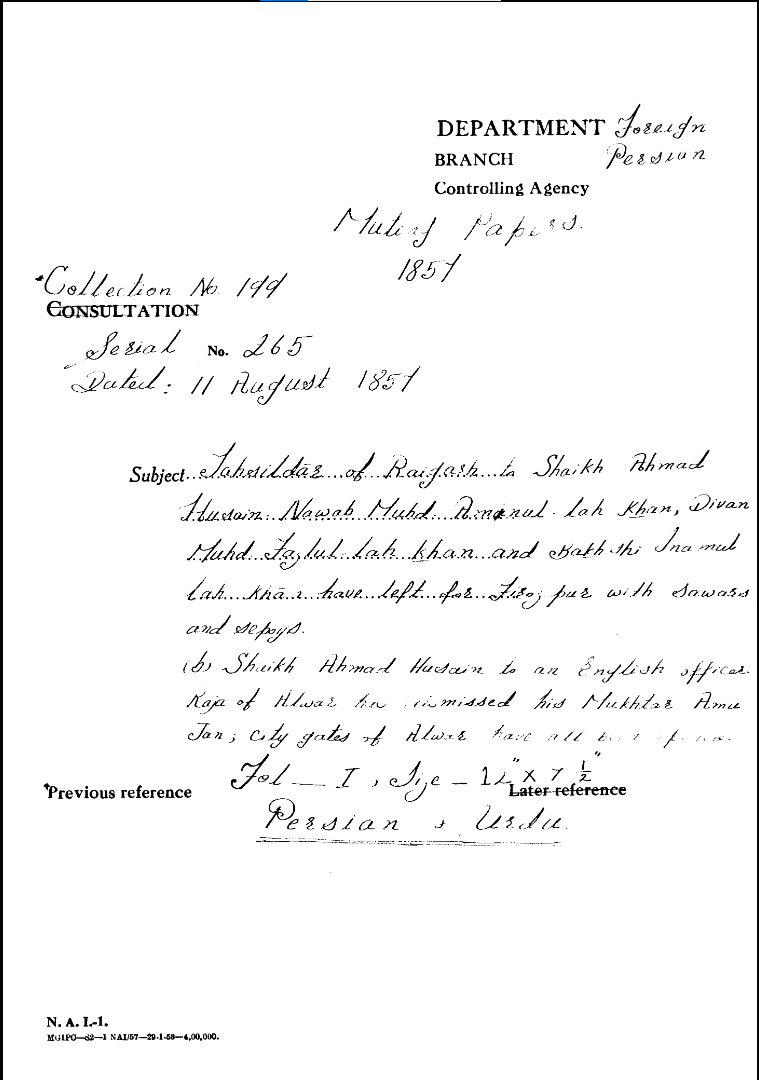 DEPARTMENT Foreign
BRANCH Persian
Controlling Agency
Mutiny Papers.
1857
*Collection No. 199
CONSULTATION
Serial No. 265
Dated: 11 August 1857
Subject..Tahsildār of Raigarh to Shaikh Ahmad
Husain. Nawab Muhd. Amanul-lah Khan, Divan
Muhd Fazlul-lah khan and Bakhshi Inamul
lah Khān have left for Firoz pur with sawars
and sepoys.
(b) Shaikh Ahmad Husain to an English officer.
Raja of Alwar has dismissed his Mukhtar Amu
Jan; city gates of Alwar have all
Fol — I, Size — 12" X 7 1/2"
*Previous reference Later reference
Persian & Urdu.
N. A. I.-1.
MGIPC—S2—1 NAI/57—29-1-58—4,00,000.